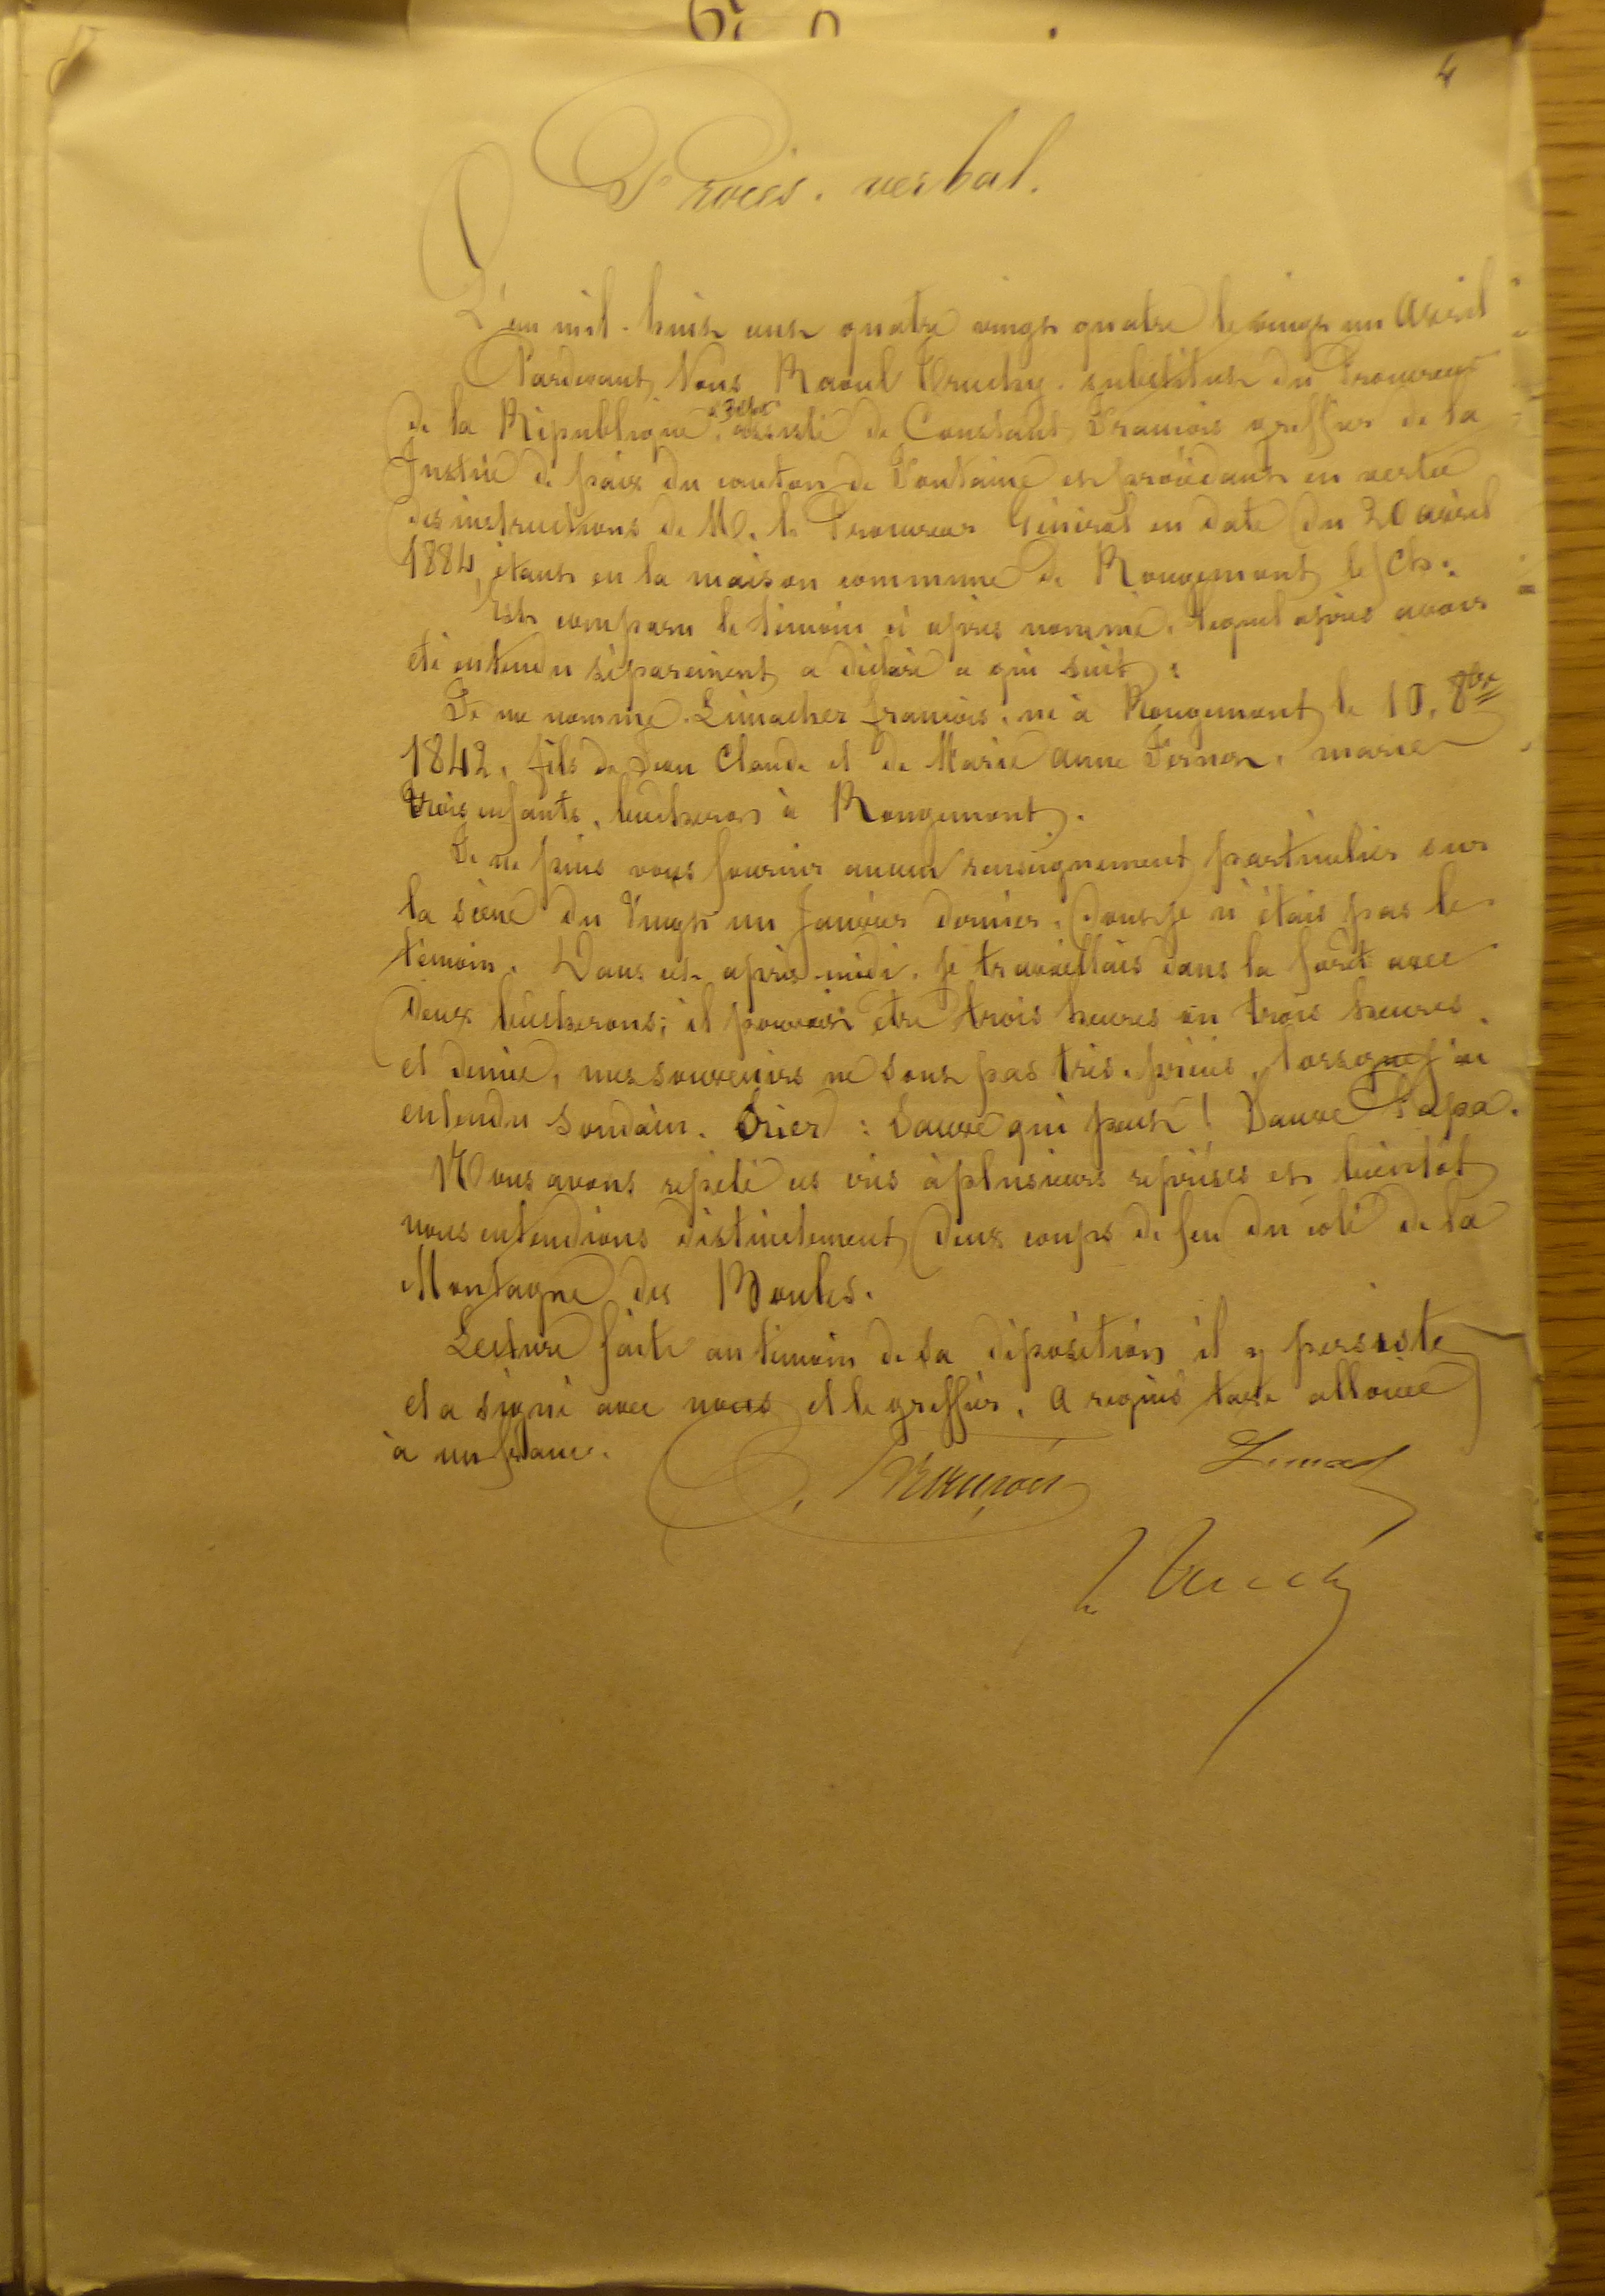 4
Procès-verbal.
L'an mil-huit cent quatre vingt quatre le vingt un Avril
Pardevant Nous Raoul Truchy. substitut du Procureur
de la République, assisté de Constant François greffier de la
Justice de paix du canton de Fontaine et procédant en vertu
des instructions de M. le Procureur Général en date du 20 avril
1884, étant en la maison commune de Rougemont le Ch.
Est comparu le témoin ci après nommé. lequel après avoir
été entendu séparément a déclaré ce qui suit :
Je me nomme Limacher françois, né à Rougemont le 10. 8bre
1842, fils de Jean Claude et de Marie anne, marié
trois enfants, bucheron à Rougemont.
Je ne puis vous fournir aucun renseignement particulier sur
la scène du Vingt un Janvier dernier, dont je n'étais pas le
témoin. Dans cet après-midi, je travaillais dans la forêt avec
deux bucherons; il pouvait être trois heures ou trois heures
et demie, mes souvenirs ne sont pas très-précis, lorsque j'ai
entendu soudain. Crier : Sauve qui peut ! Sauve Papa.
Nous avons répété ces cris à plusieurs reprises et bientôt
nous entendions distinctement deux coups de feu du coté de la
Montagne des Boules.
Lecture faite au témoin de sa déposition il y persiste
et a signé avec nous et le greffier. A requis taxe allouée
à un franc.